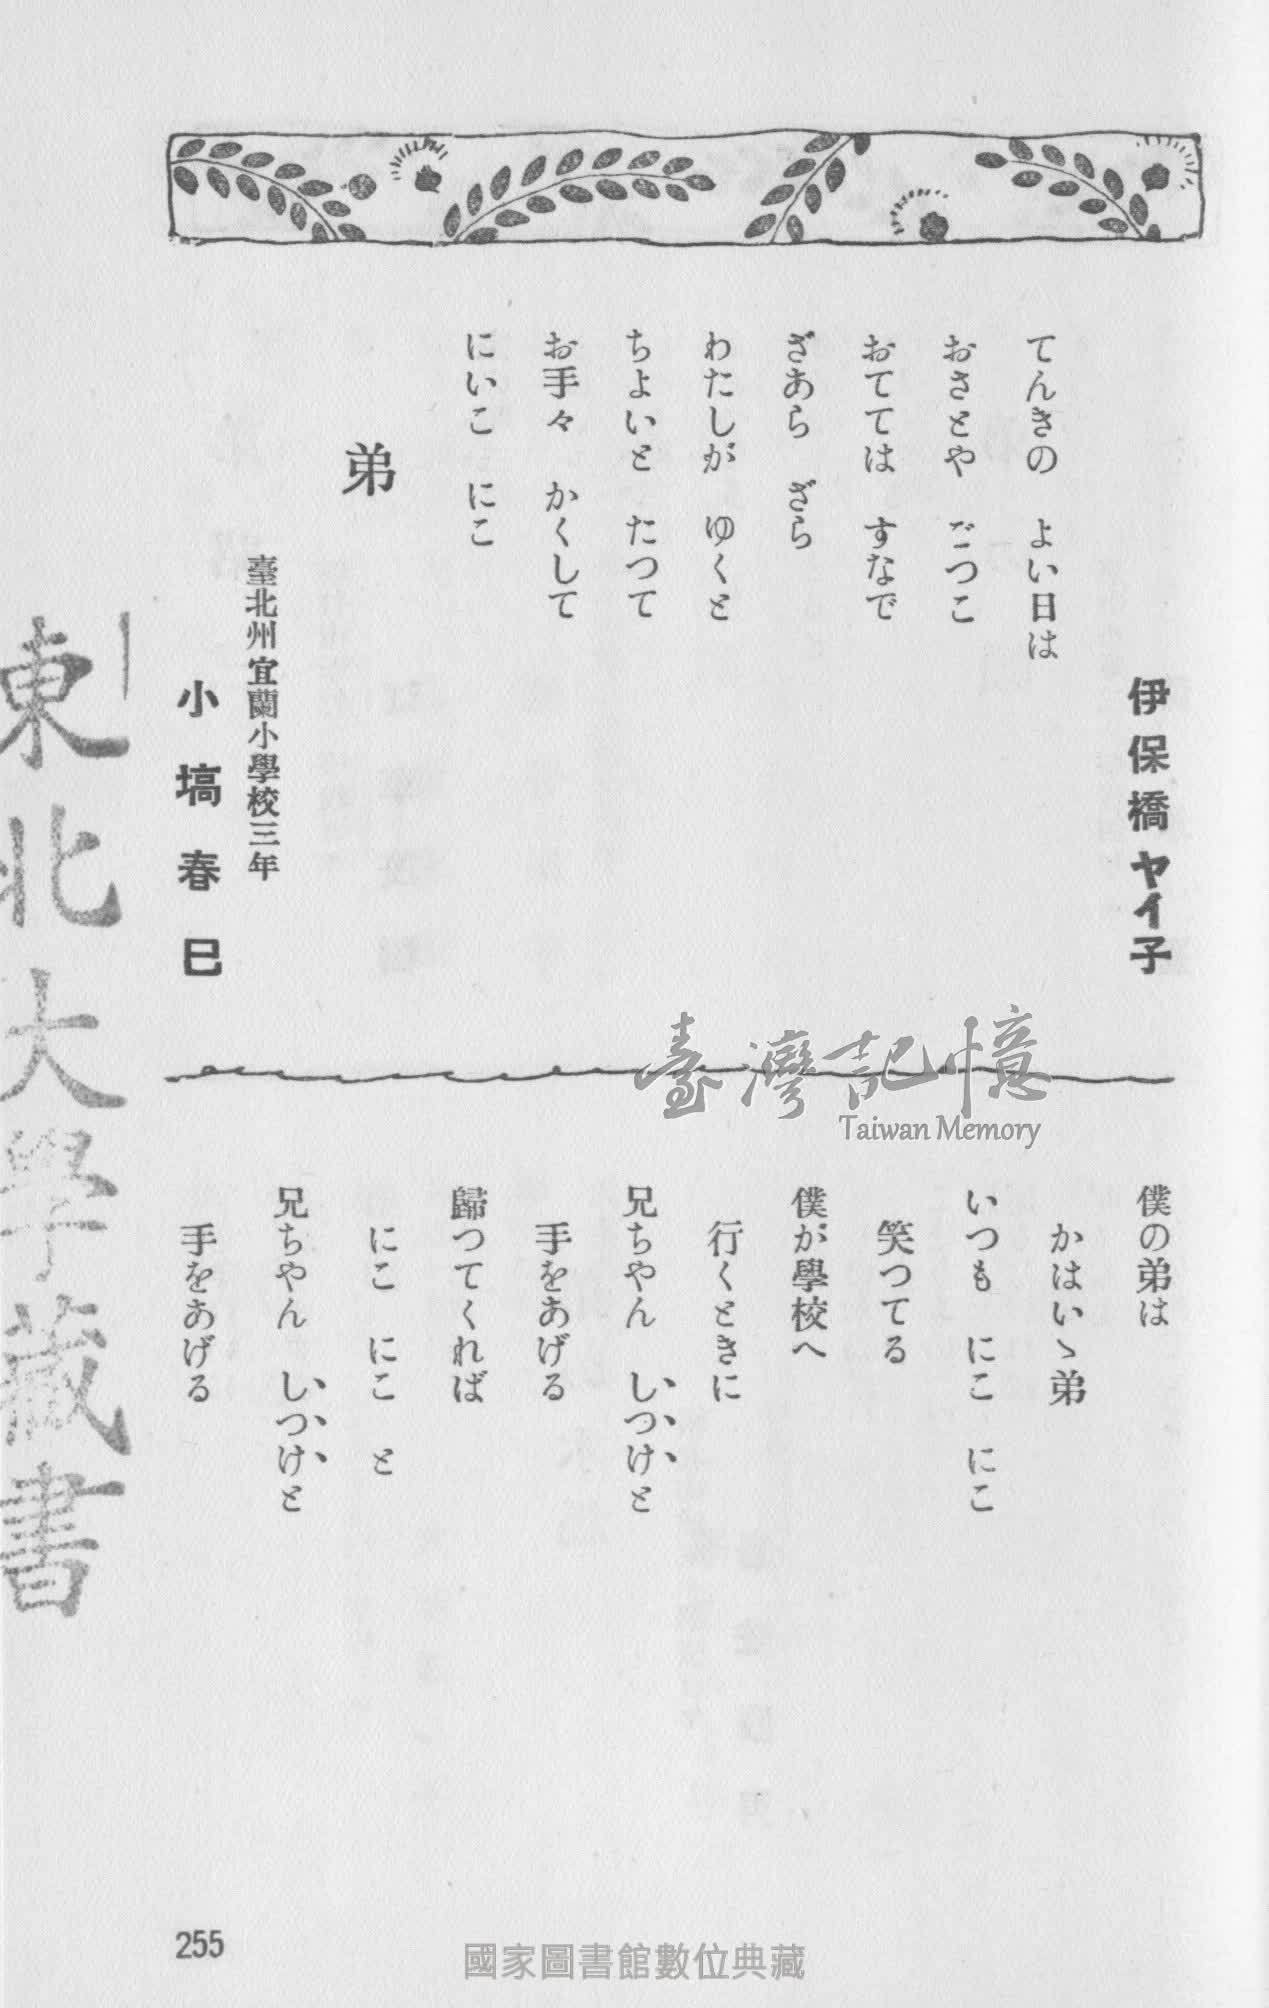 伊保橋ヤイ子
てんきの　よい日は
おさとや　ごつこ
おてては　すなで
ざあら　ざら
わたしが　ゆくと
ちよいと　たつて
お手々　かくして
にいこ　にこ
弟
臺北州宜蘭小學校三年
小塙春巳
僕の弟は
かはいゝ弟
いつも　にこ　にこ
笑つてる
僕が學校へ
行くときに
兄ちやん　しつけと
手をあげる
歸つてくれば
にこ　にこ　と
兄ちやん　しつけと
手をあげる
255
東北大學藏書
臺灣記憶
Taiwan Memory
國家圖書館數位典藏